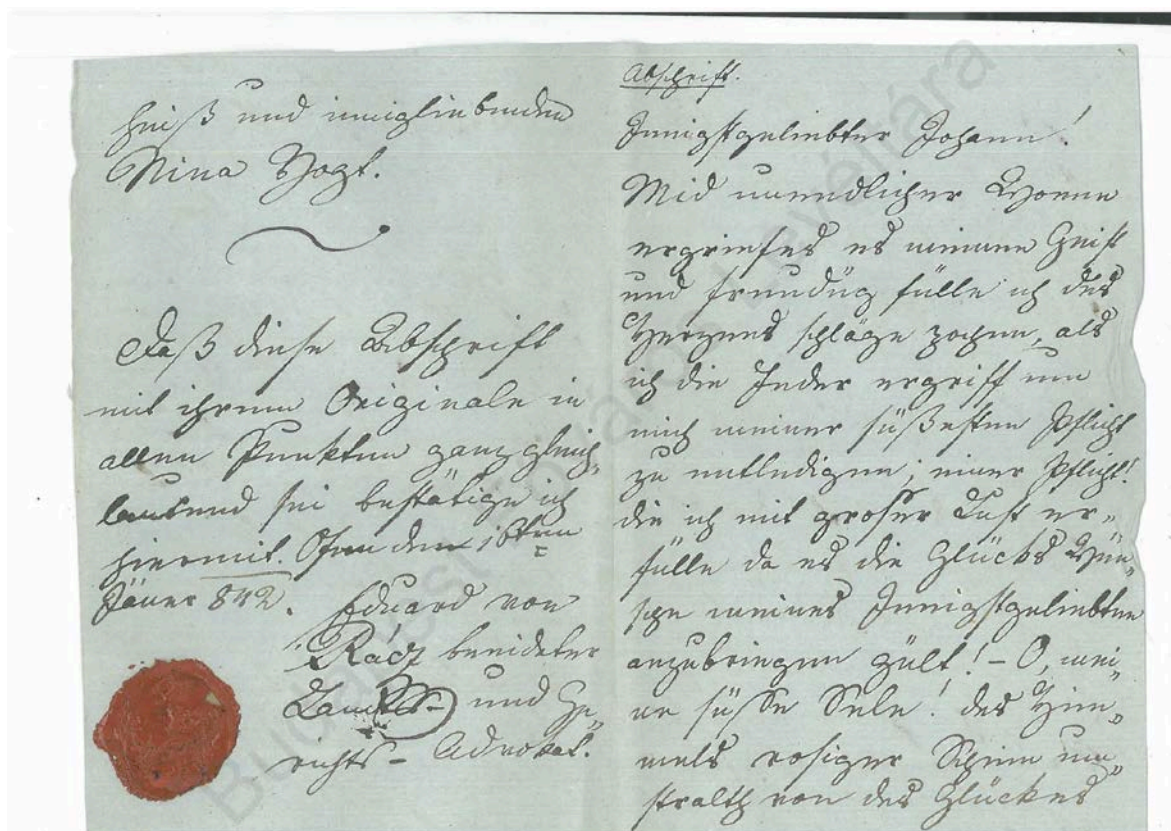 heiß und innigliebenden
Nina Vogt.
Daß diese Abschrift
mit ihrem Originale in
allen Punkten ganz gleich„
lautend sei bestätige ich
hiermit. Ofen den 16ten
Jäner 842.
Eduard von
Rácz beeideter
Landes- und Ge„
richts- Advokat.
Abschrift.
Innigstgeliebter Johann!
Mid unendlicher Wonne
ergriefes es meinen Geist
und freudüg fülle ich des
Herzens schläge pochen, als
ich die Feder ergriff um
mich meiner süßesten Pflicht
zu entledigen; einer Pflicht!
die ich mit groser Lust er„
fülle da es die Glücks Wün„
sche meines Innigstgeliebten
anzubringen gült! – O, mei„
ne süsse Sele! des Him„
mels rosiger Schein um„
stralth von des Glückes
Budapest Főváros Levéltára